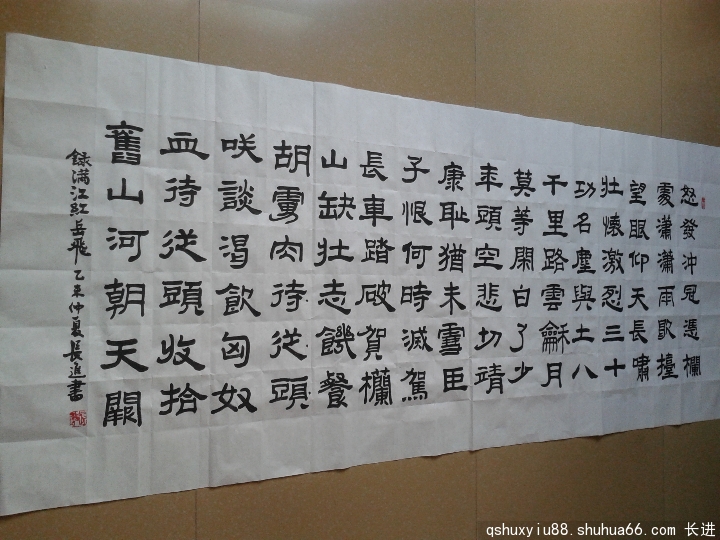 怒發沖冠憑欄
處瀟瀟雨歇擡
望眼仰天長嘯
壯懷激烈三十
功名塵與土八
千里路雲龢月
莫等閑白了少
年頭空悲切靖
康恥猶未雪臣
子恨何時滅駕
長車踏破賀欗
山缺壯志饑餐
胡虜肉待従頭
咲談渴飲匈奴
血待従頭收拾
舊山河朝天闕
錄滿江紅岳飛 乙未仲夏長進書
qshuxyiu88.shuhua66.com 长进